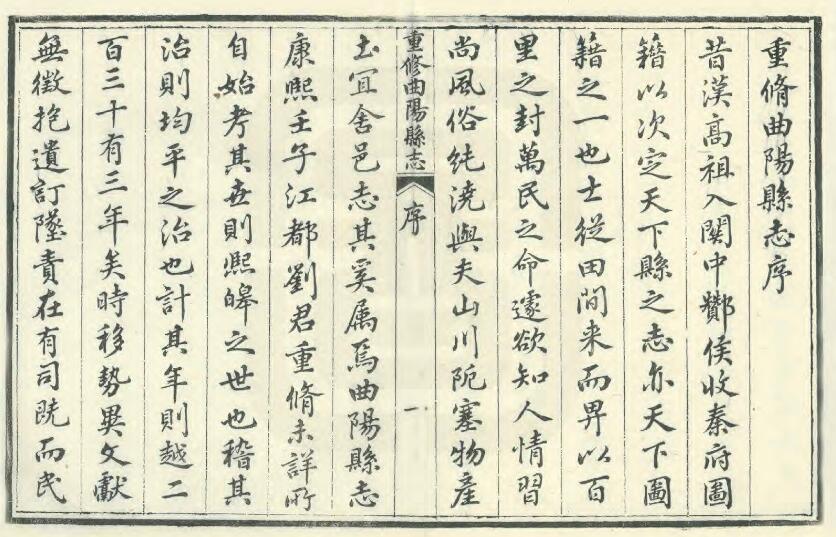 重脩曲陽縣志序
昔漢高祖入関中酇侯收秦府圖
籍以次定天下縣之志亦天下圖
籍之一也士從田間来而畀以百
里之封萬民之命遽欲知人情習
尚風俗純澆與夫山川阨塞物產
重修曲陽縣志
序
一
土宜舍邑志其奚属焉曲陽縣志
康熙壬子江都劉君重脩未詳所
自始考其世則熙皞之世也稽其
治則均平之治也計其年則越二
百三十有三年矣時移勢異文獻
無徵抱遺訂墜責在有司既而民